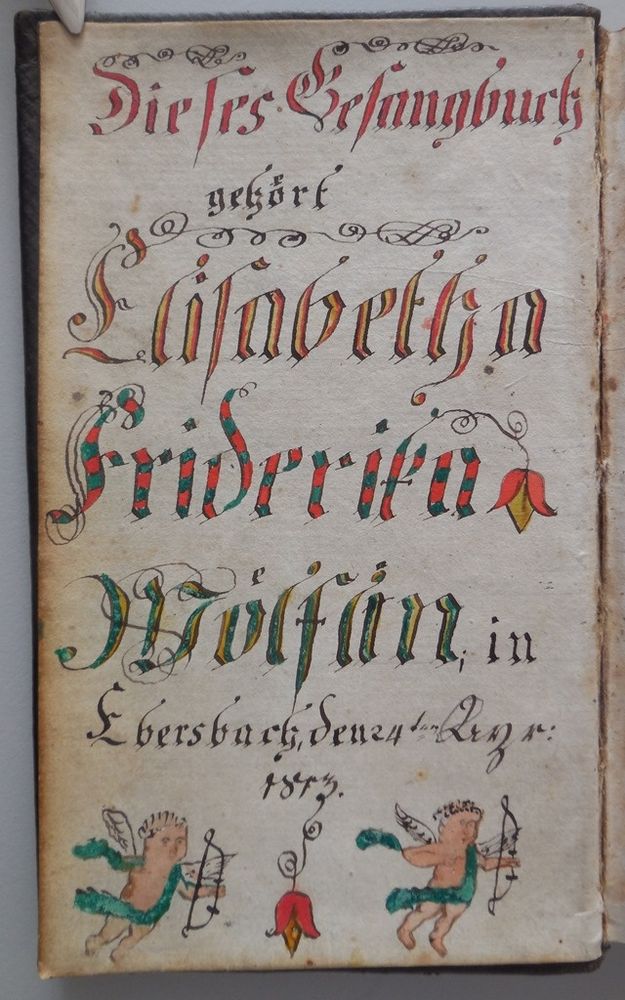 Dieses Gesangbuch
gehört
Elisabetha
Friderika
Wölfin, in
Ebersbach, den 24ten Apr:
1813.